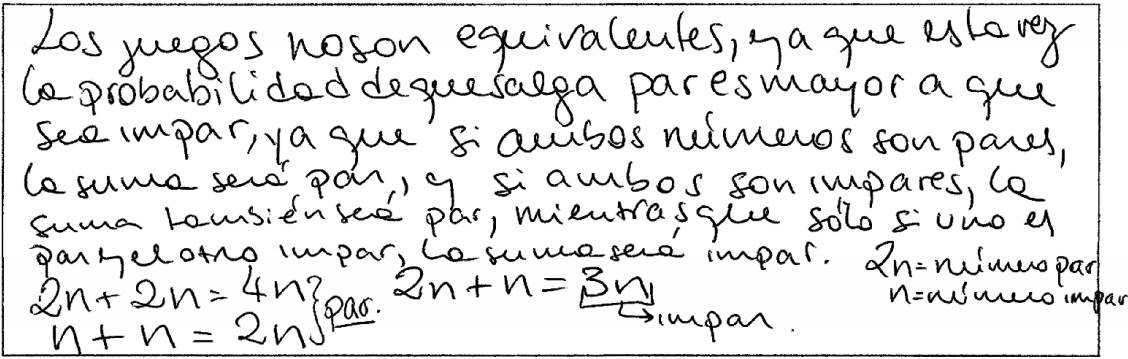 Los juegos no son equivalentes, ya que esta vez
la probabilidad de que salga par es mayor a que
sea impar, ya que si ambos números son pares,
la suma será par, y si ambos son impares, la
suma también será par, mientras que sólo si uno es
par y el otro impar, la suma será impar. 2n=número par
2n+2n=4n } par. 2n+n=3n n=número impar
n+n=2n → impar.